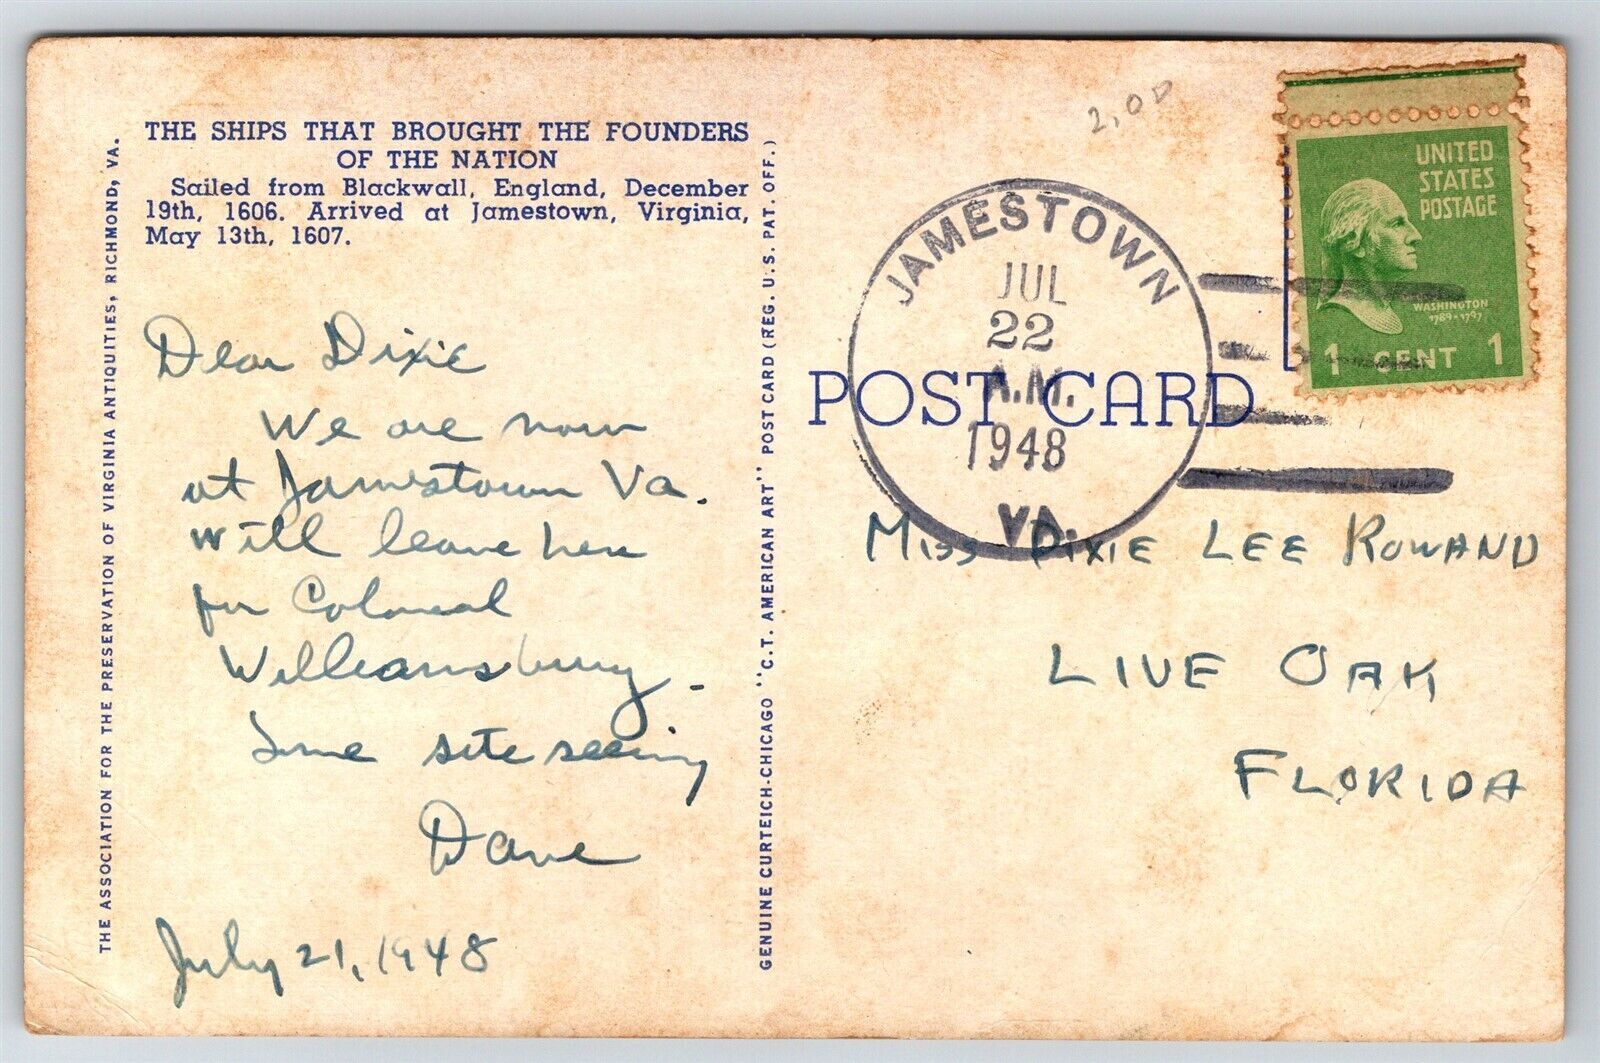 THE SHIPS THAT BROUGHT THE FOUNDERS
OF THE NATION
Sailed from Blackwall, England, December
19th, 1606. Arrived at Jamestown, Virginia,
May 13th, 1607.
THE ASSOCIATION FOR THE PRESERVATION OF VIRGINIA ANTIQUITIES, RICHMOND, VA.
Dear Dixie
We are now
at Jamestown Va.
will leave here
for Colonial
Williamsburg.
Some site seeing
Dave
July 21, 1948
GENUINE CURTEICH-CHICAGO "C.T. AMERICAN ART" POST CARD (REG. U.S. PAT. OFF.)
2,00
JAMESTOWN
JUL
22
A.M.
1948
VA.
UNITED
STATES
POSTAGE
WASHINGTON
1789-1797
1 CENT 1
POST CARD
MISS DIXIE LEE ROWAND
LIVE OAK
FLORIDA